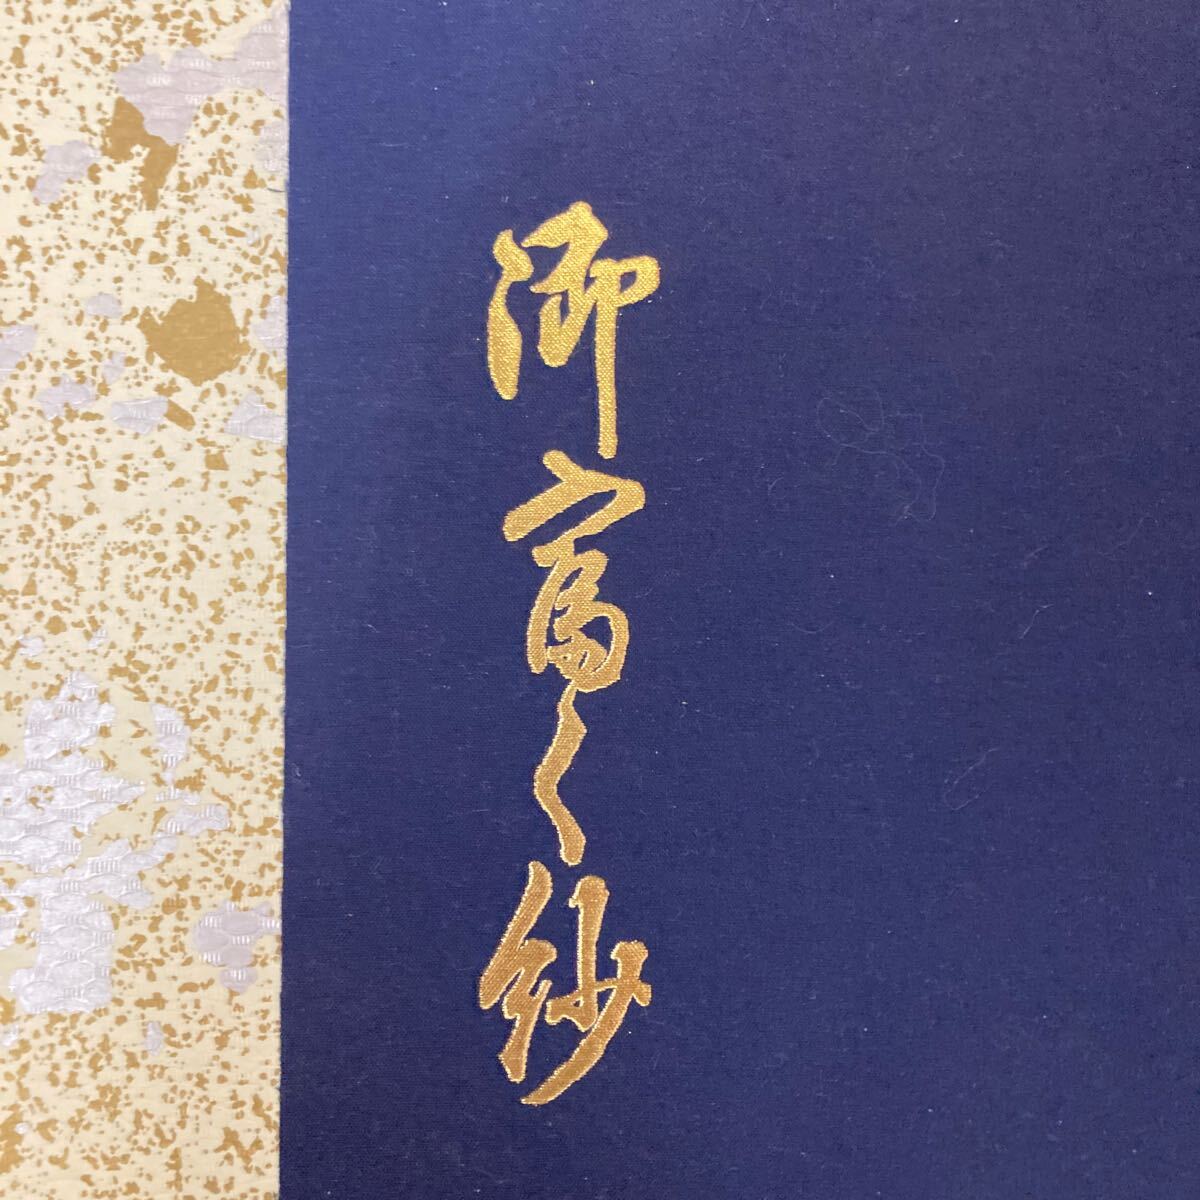 御富く紗